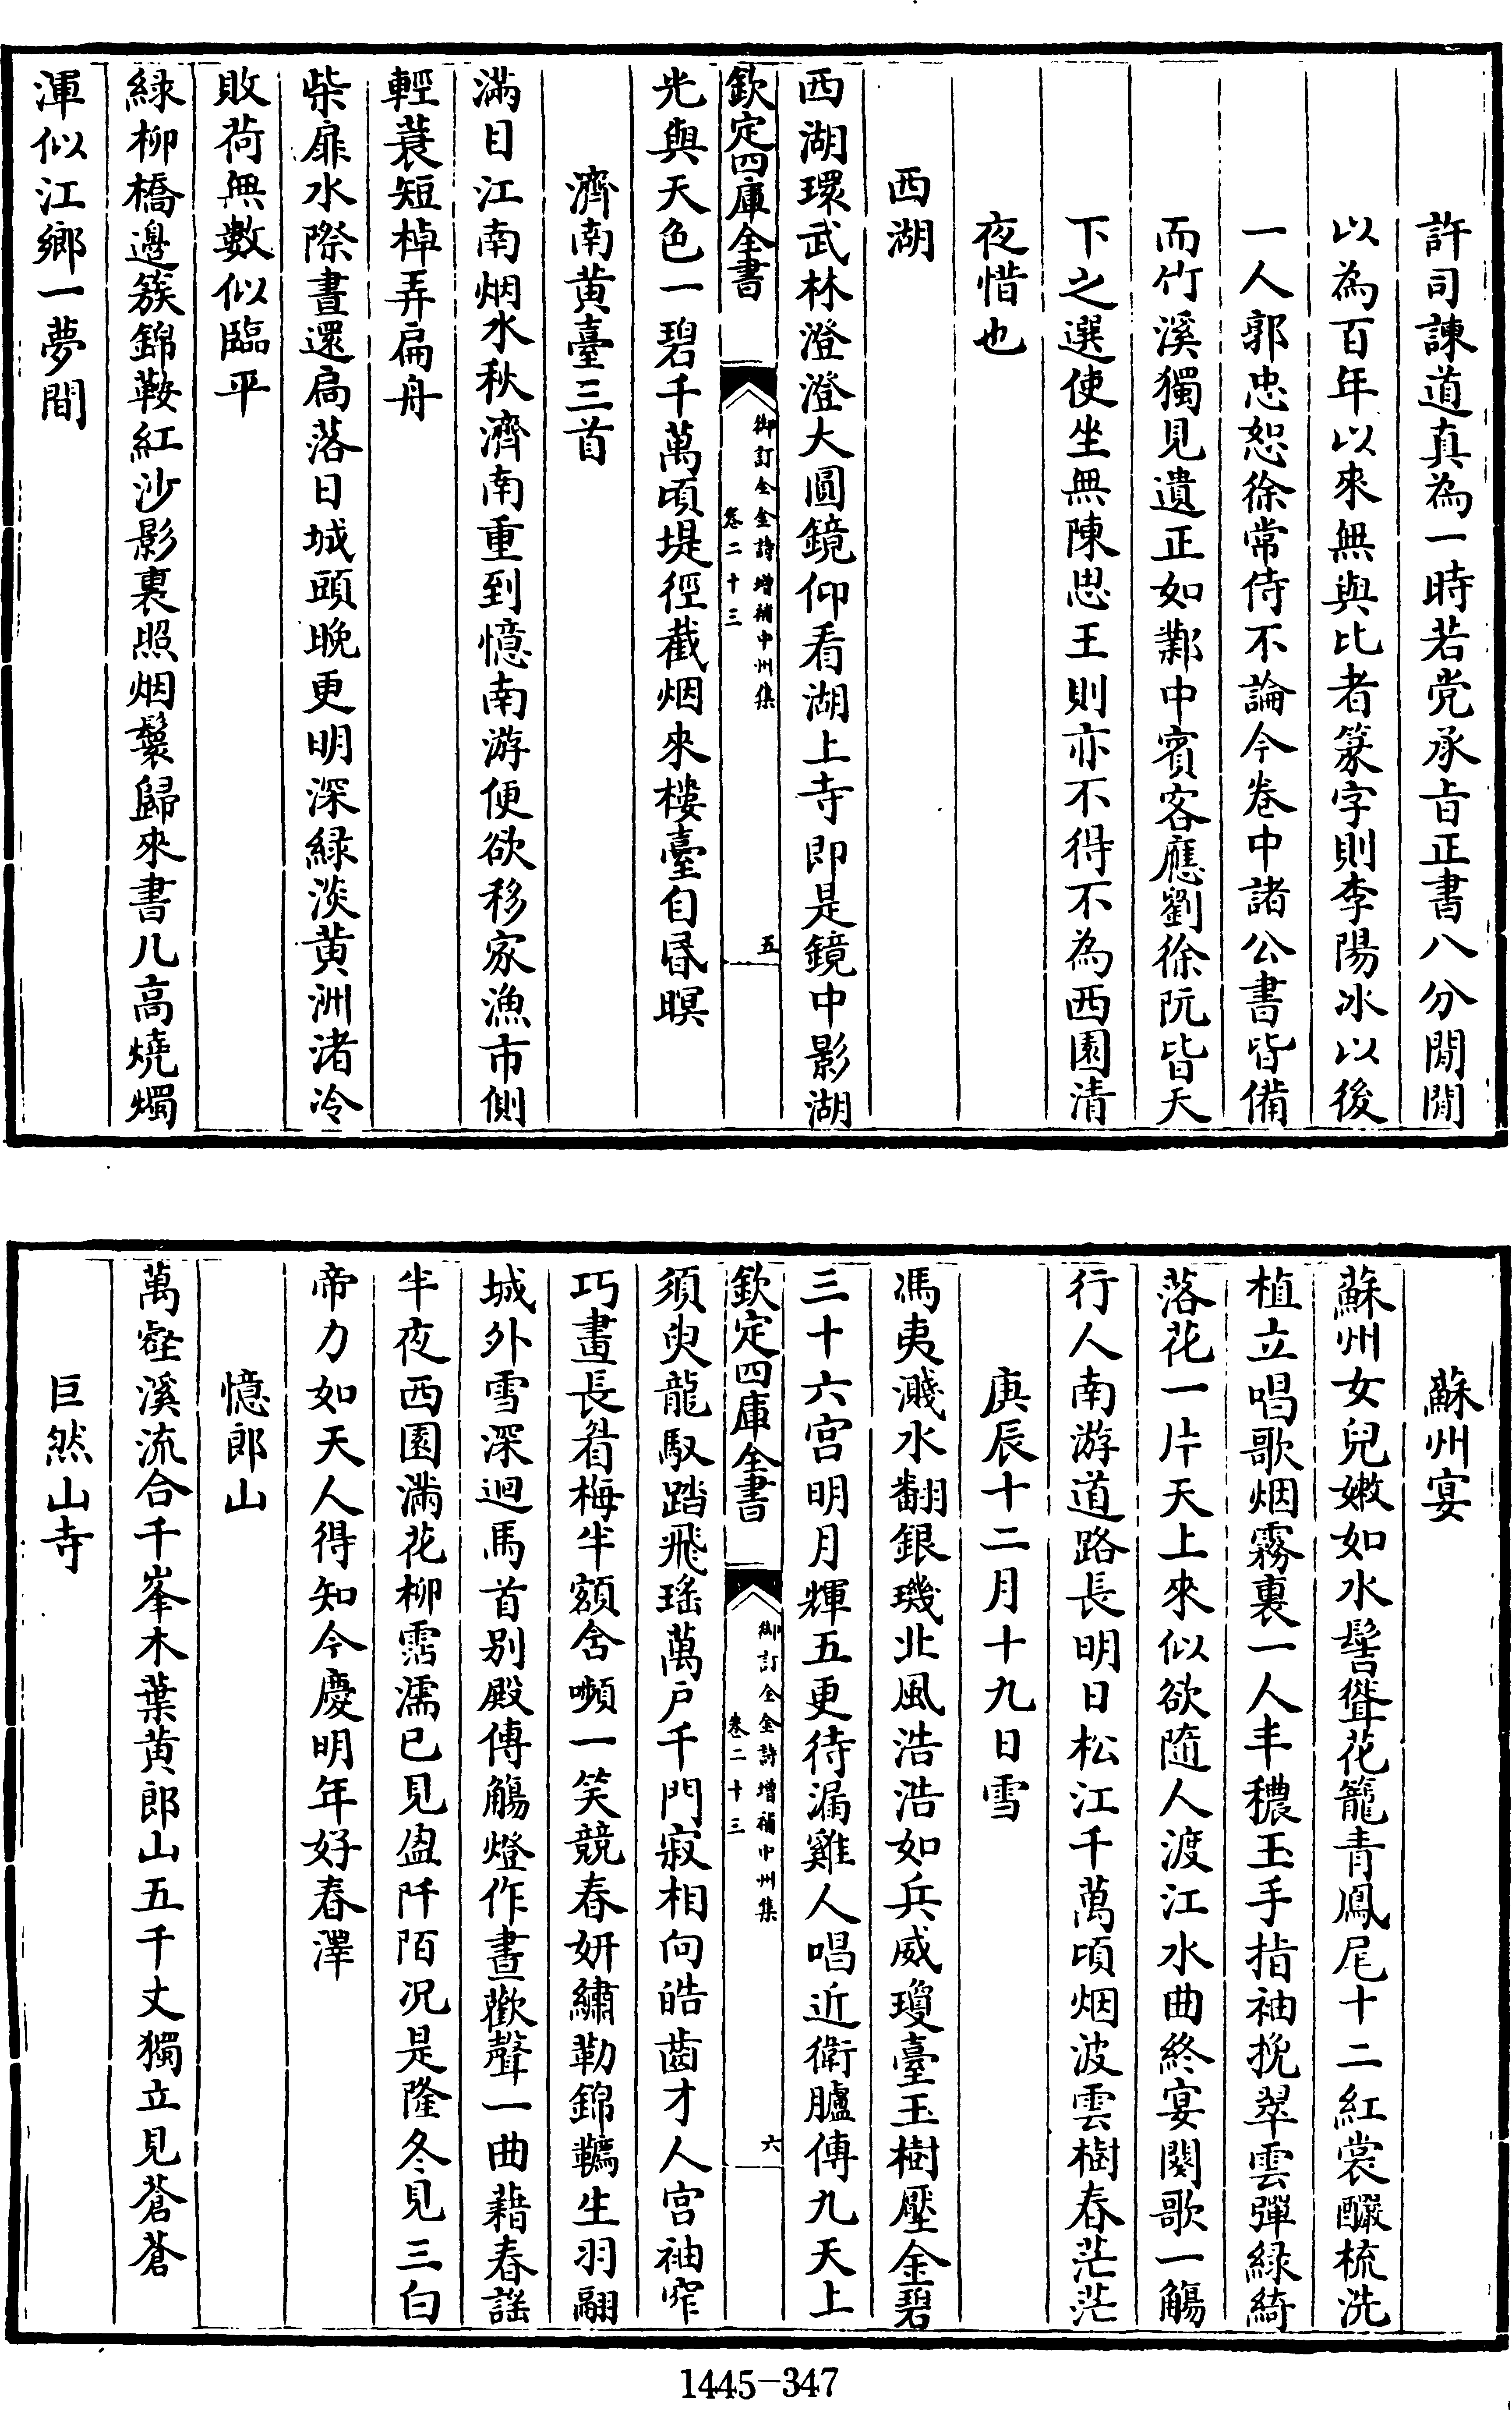 許司諫道真為一時若党承旨正書八分閒閒
以為百年以來無與比者篆字則李陽冰以後
一人郭忠恕徐常侍不論今卷中諸公書皆備
而竹溪獨見遺正如鄴中賓客應劉徐阮皆天
下之選使坐無陳思王則亦不得不為西園清
夜惜也
西湖
西湖環武林澄澄大圓鏡仰看湖上寺即是鏡中影湖
欽定四庫全書
御訂全金詩增補中州集
卷二十三
五
光與天色一碧千萬頃堤徑截烟來樓臺自昏暝
濟南黄臺三首
滿目江南烟水秋濟南重到憶南游便欲移家漁市側
輕蓑短棹弄扁舟
柴扉水際晝還扃落日城頭晚更明深緑淡黄洲渚冷
敗荷無數似臨平
緑柳橋邊簇錦鞍紅沙影裏照烟鬟歸來書几高燒燭
渾似江鄉一夢間
蘇州宴
蘇州女兒嫩如水髻聳花籠青鳳尾十二紅裳釅梳洗
植立唱歌烟霧裏一人丰穠玉手指袖挽翠雲彈緑綺
落花一片天上來似欲隨人渡江水曲終宴闋歌一觴
行人南游道路長明日松江千萬頃烟波雲樹春茫茫
庚辰十二月十九日雪
馮夷濺水翻銀璣北風浩浩如兵威瓊臺玉樹壓金碧
三十六宫明月輝五更待漏雞人唱近衛臚傳九天上
欽定四庫全書
御訂全金詩增補中州集
卷二十三
六
須臾龍馭踏飛瑤萬户千門寂相向皓齒才人宫袖窄
巧畫長眉梅半額含嚬一笑競春妍繡勒錦韉生羽翮
城外雪深迴馬首别殿傳觴燈作晝歡聲一曲藉春謡
半夜西園滿花柳霑濡已見盈阡陌况是隆冬見三白
帝力如天人得知今慶明年好春澤
憶郎山
萬壑溪流合千峯木葉黄郎山五千丈獨立見蒼蒼
巨然山寺
1445-347